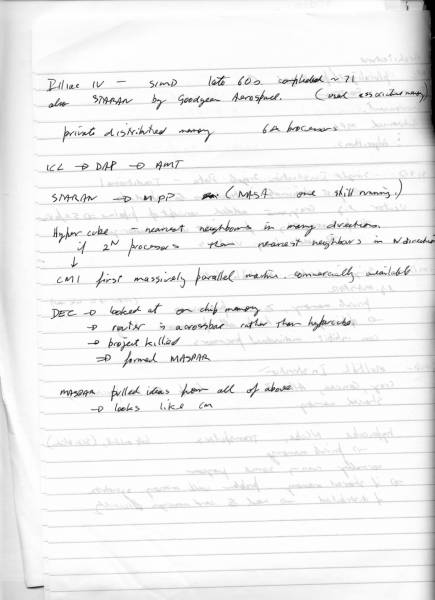 Illiac IV - SIMD late 60s completed ~ 71
also STARAN by Goodyear Aerospace. (used associative memory)
private distributed memory 64 processors
ICL → DAP → AMT
STARAN → MPP (NASA one still running.)
Hypercube - nearest neighbours in many directions.
if 2^N processors then nearest neighbours in N directions
↓
CM1 first massively parallel machine. commercially available
DEC → looked at on chip memory
→ router is a crossbar rather than hypercube
→ project killed
⇒ formed MASPAR
MASPAR pulled ideas from all of above
→ looks like CM